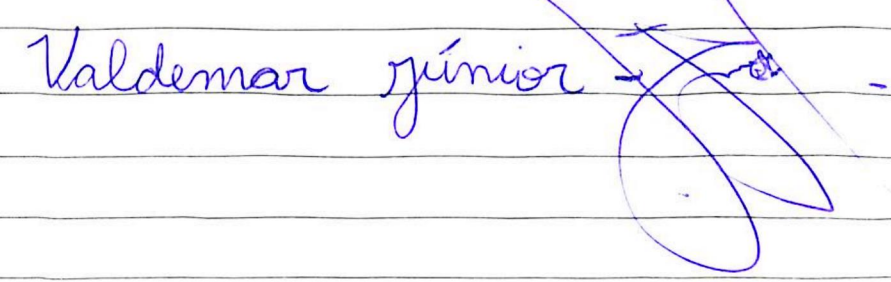 Valdemar júnior -